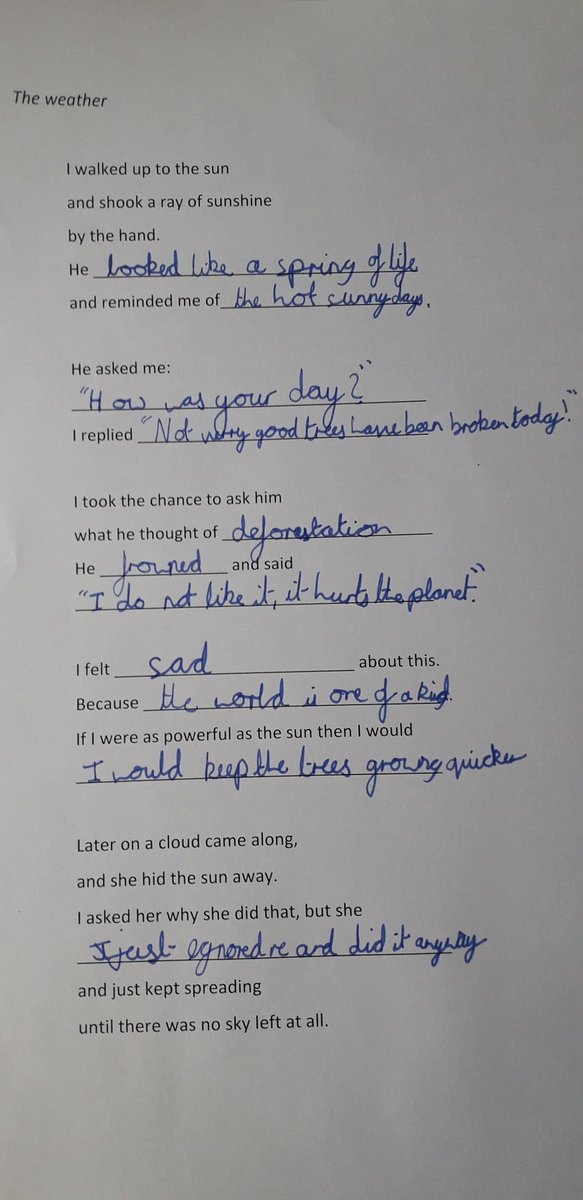 The weather
I walked up to the sun
and shook a ray of sunshine
by the hand.
He looked like a spring of life
and reminded me of the hot sunny days.
He asked me:
"How was your day?"
I replied "Not very good trees have been broken today!"
I took the chance to ask him
what he thought of deforestation
He frowned and said
"I do not like it, it hurts the planet."
I felt sad about this.
Because the world is one of a kid.
If I were as powerful as the sun then I would
I would keep the trees growing quicker
Later on a cloud came along,
and she hid the sun away.
I asked her why she did that, but she
just egnored me and did it anyway
and just kept spreading
until there was no sky left at all.